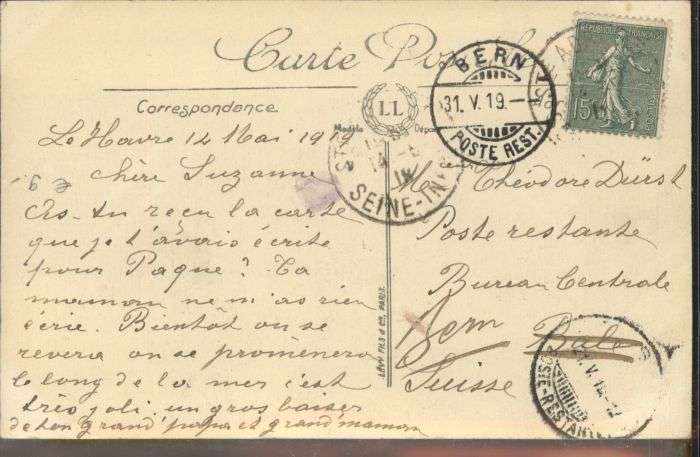 Carte Postale
Correspondance
LL
Modèle Déposé
BERN 1
31. V. 19.-
POSTE REST.
RÉPUBLIQUE FRANÇAISE
15c
SEINE-INF
Le Havre 12 Mai 1919
Chère Suzanne
As-tu reçu la carte
que je t'avais écrite
pour Paque? Ta
maman ne m'as rien
écrie. Bientôt on se
revera on se promènera
le long de la mer c'est
très joli. un gros baiser
de ton grand papa et grand maman
LÉVY FILS & Cie, PARIS.
Mr Théodore Dürst
Poste restante
Bureau Centrale
Bern Bale
Suisse
POSTE-RESTANTE